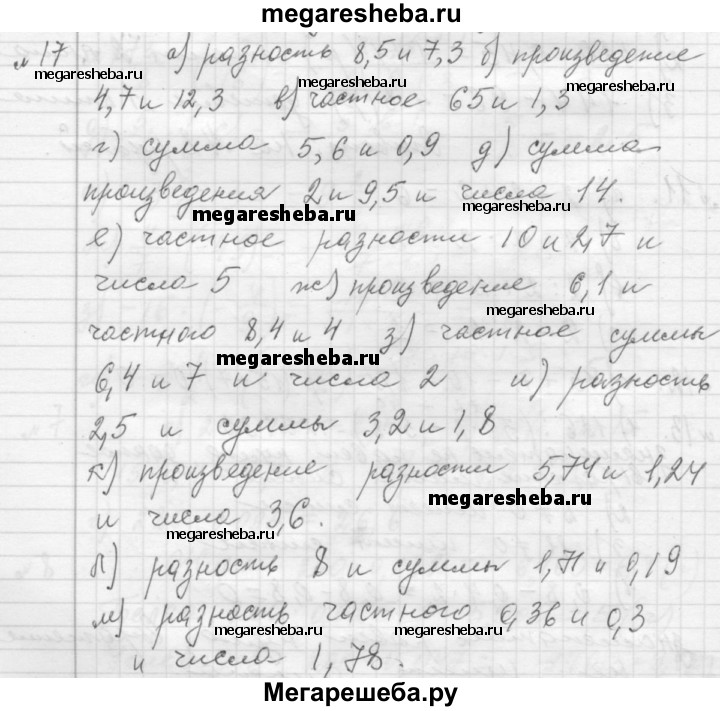 megaresheba.ru
№17 а) разность 8,5 и 7,3 б) произведение
megaresheba.ru megaresheba.ru
4,7 и 12,3 в) частное 65 и 1,3
г) сумма 5,6 и 0,9 д) сумма
произведения 2 и 9,5 и числа 14.
megaresheba.ru
е) частное разности 10 и 2,7 и
числа 5 ж) произведение 6,1 и
megaresheba.ru
частного 8,4 и 4 з) частное суммы
megaresheba.ru
6,4 и 7 и числа 2 и) разность
2,5 и суммы 3,2 и 1,8
к) произведение разности 5,74 и 1,24
megaresheba.ru
и числа 3,6.
л) разность 8 и суммы 1,71 и 0,19
м) разность частного 0,36 и 0,3
megaresheba.ru megaresheba.ru
и числа 1,78.
Мегарешеба.ру